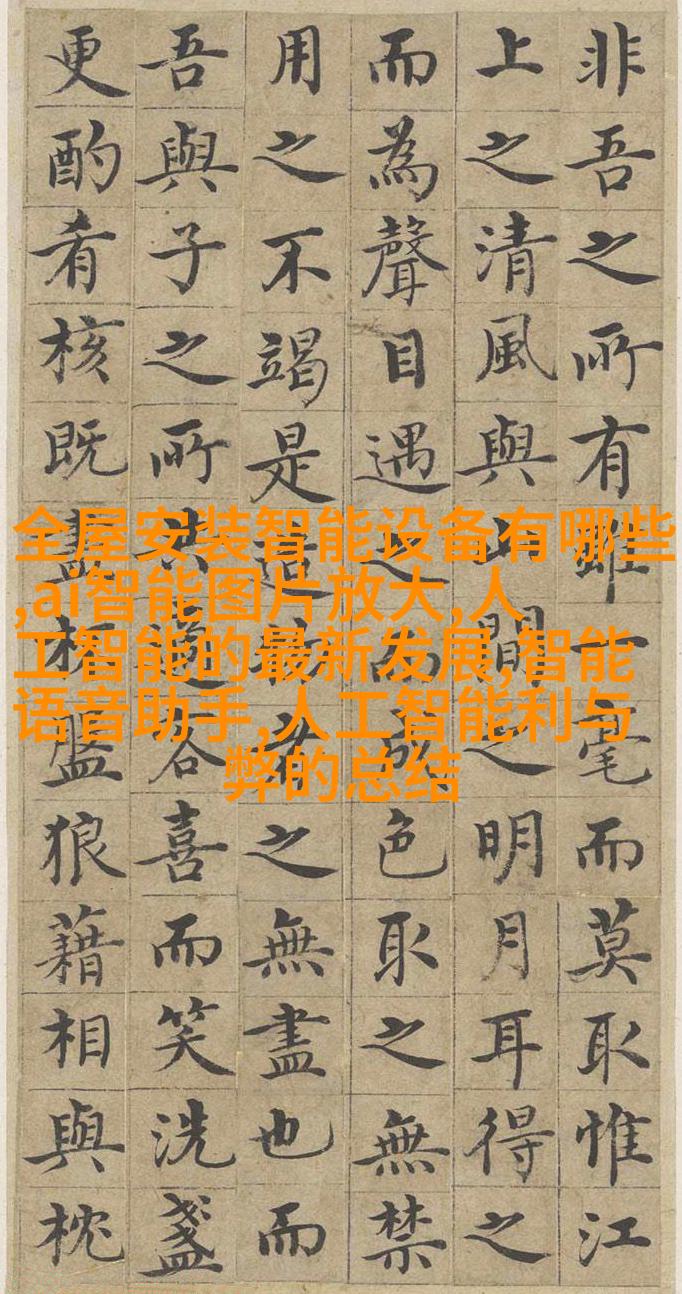 非吾之所有雖一毫而莫取惟江
上之清風與山間之明月耳得之
而為聲目遇之而成色取之無禁
用之不竭是造物者之無盡也而
吾與子之所共適客喜而笑洗盞
更酌肴核既盡杯盤狼藉相與枕
全屋安装智能设备有哪些
,ai智能图片放大,人
工智能的最新发展,智能
语音助手,人工智能利与
弊的总结